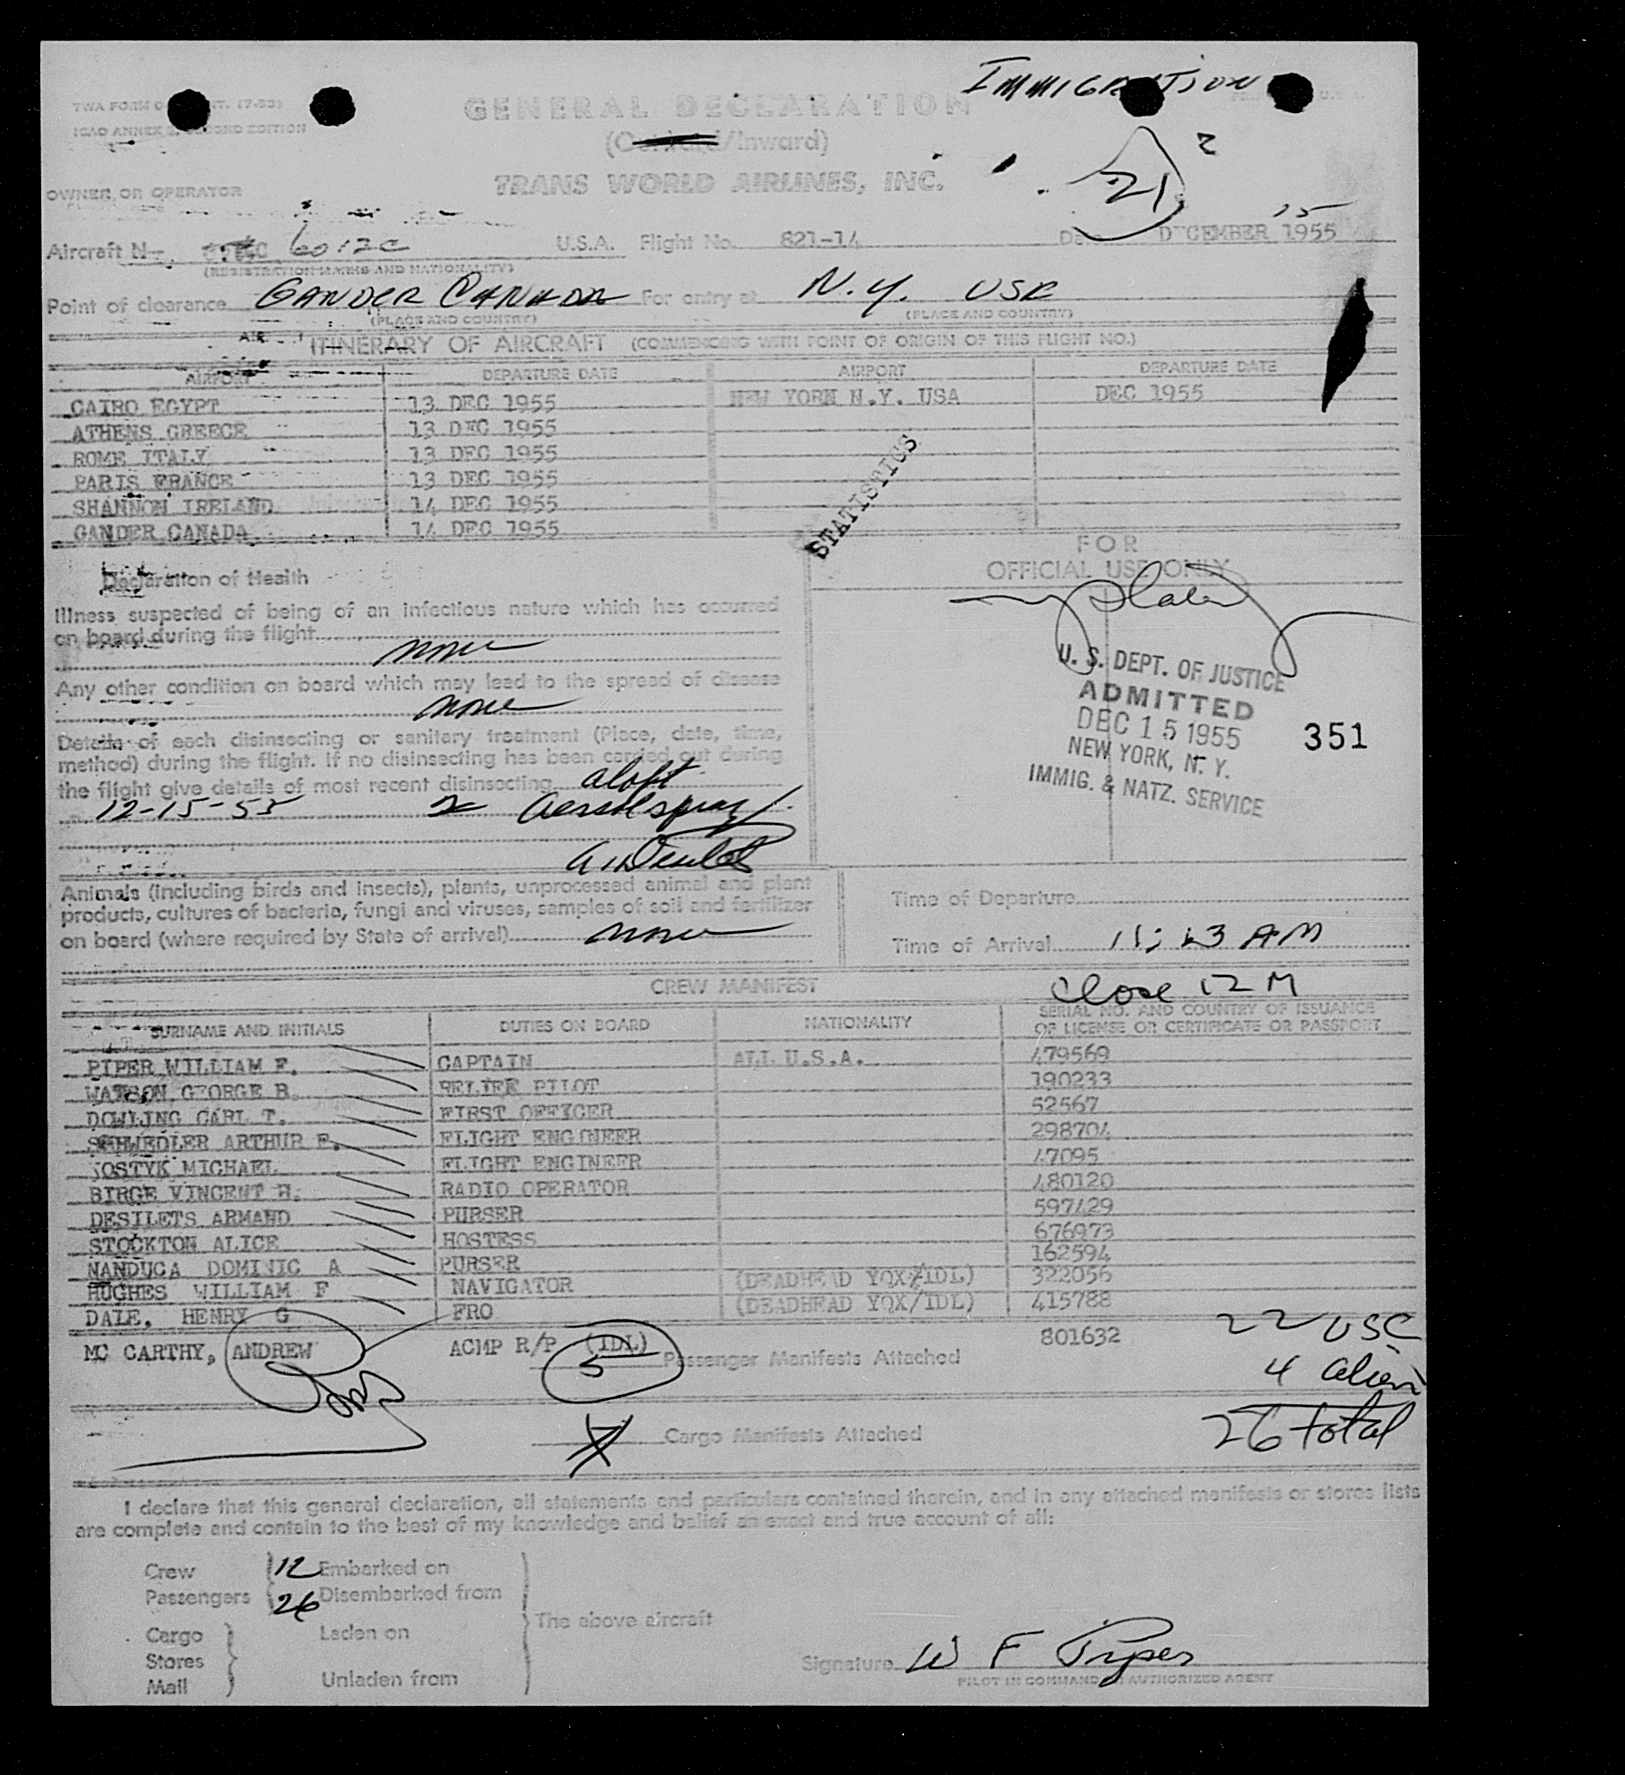 IMMIGRATION
GENERAL DECLARATION
(Outward/Inward)
TRANS WORLD AIRLINES, INC.
21
2
OWNER OR OPERATOR
15
Aircraft No. 6012C U.S.A. Flight No. 821-14 Date DECEMBER 1955
(REGISTRATION MARKS AND NATIONALITY)
Point of clearance GANDER CANADA For entry at N.Y. USA
(PLACE AND COUNTRY) (PLACE AND COUNTRY)
ITINERARY OF AIRCRAFT (COMMENCING WITH POINT OF ORIGIN OF THIS FLIGHT NO.)
AIRPORT DEPARTURE DATE AIRPORT DEPARTURE DATE
CAIRO EGYPT 13 DEC 1955 NEW YORK N.Y. USA DEC 1955
ATHENS GREECE 13 DEC 1955
ROME ITALY 13 DEC 1955
PARIS FRANCE 13 DEC 1955
SHANNON IRELAND 14 DEC 1955
GANDER CANADA 14 DEC 1955
STATISTICS
FOR
OFFICIAL USE ONLY
Declaration of Health
Illness suspected of being of an infectious nature which has occurred
on board during the flight
none
Any other condition on board which may lead to the spread of disease
none
Details of each disinsecting or sanitary treatment (Place, date, time,
method) during the flight. If no disinsecting has been carried out during
the flight give details of most recent disinsecting aloft
12-15-55 Aerosol spray
U. S. DEPT. OF JUSTICE
ADMITTED
DEC 15 1955
NEW YORK, N. Y.
IMMIG. & NATZ. SERVICE
351
Animals (including birds and insects), plants, unprocessed animal and plant
products, cultures of bacteria, fungi and viruses, samples of soil and fertilizer
on board (where required by State of arrival) none
Time of Departure
Time of Arrival 11:13 AM
Close 12 M
CREW MANIFEST
SURNAME AND INITIALS DUTIES ON BOARD NATIONALITY SERIAL NO. AND COUNTRY OF ISSUANCE
OF LICENSE OR CERTIFICATE OR PASSPORT
PIPER WILLIAM F. CAPTAIN ALL U.S.A. 479569
WATSON GEORGE B. RELIEF PILOT 190233
DOWLING CARL T. FIRST OFFICER 52567
SCHWEDLER ARTHUR F. FLIGHT ENGINEER 298704
KOSTYK MICHAEL FLIGHT ENGINEER 47095
BIRGE VINCENT H. RADIO OPERATOR 480120
DESILETS ARMAND PURSER 597429
STOCKTON ALICE HOSTESS 676973
MANDUCA DOMINIC A PURSER 162594
HUGHES WILLIAM F NAVIGATOR (DEADHEAD YQX/IDL) 322056
DALE, HENRY G FRO (DEADHEAD YQX/IDL) 415788
MC CARTHY, ANDREW ACMP R/P (IDL) 801632
5 Passenger Manifests Attached
22 USC
4 alien
26 total
Cargo Manifests Attached
I declare that this general declaration, all statements and particulars contained therein, and in any attached manifests or stores lists
are complete and contain to the best of my knowledge and belief an exact and true account of all:
Crew 12 Embarked on
Passengers 26 Disembarked from
The above aircraft
Cargo Laden on
Stores
Mail Unladen from
Signature W F Piper
PILOT IN COMMAND AUTHORIZED AGENT